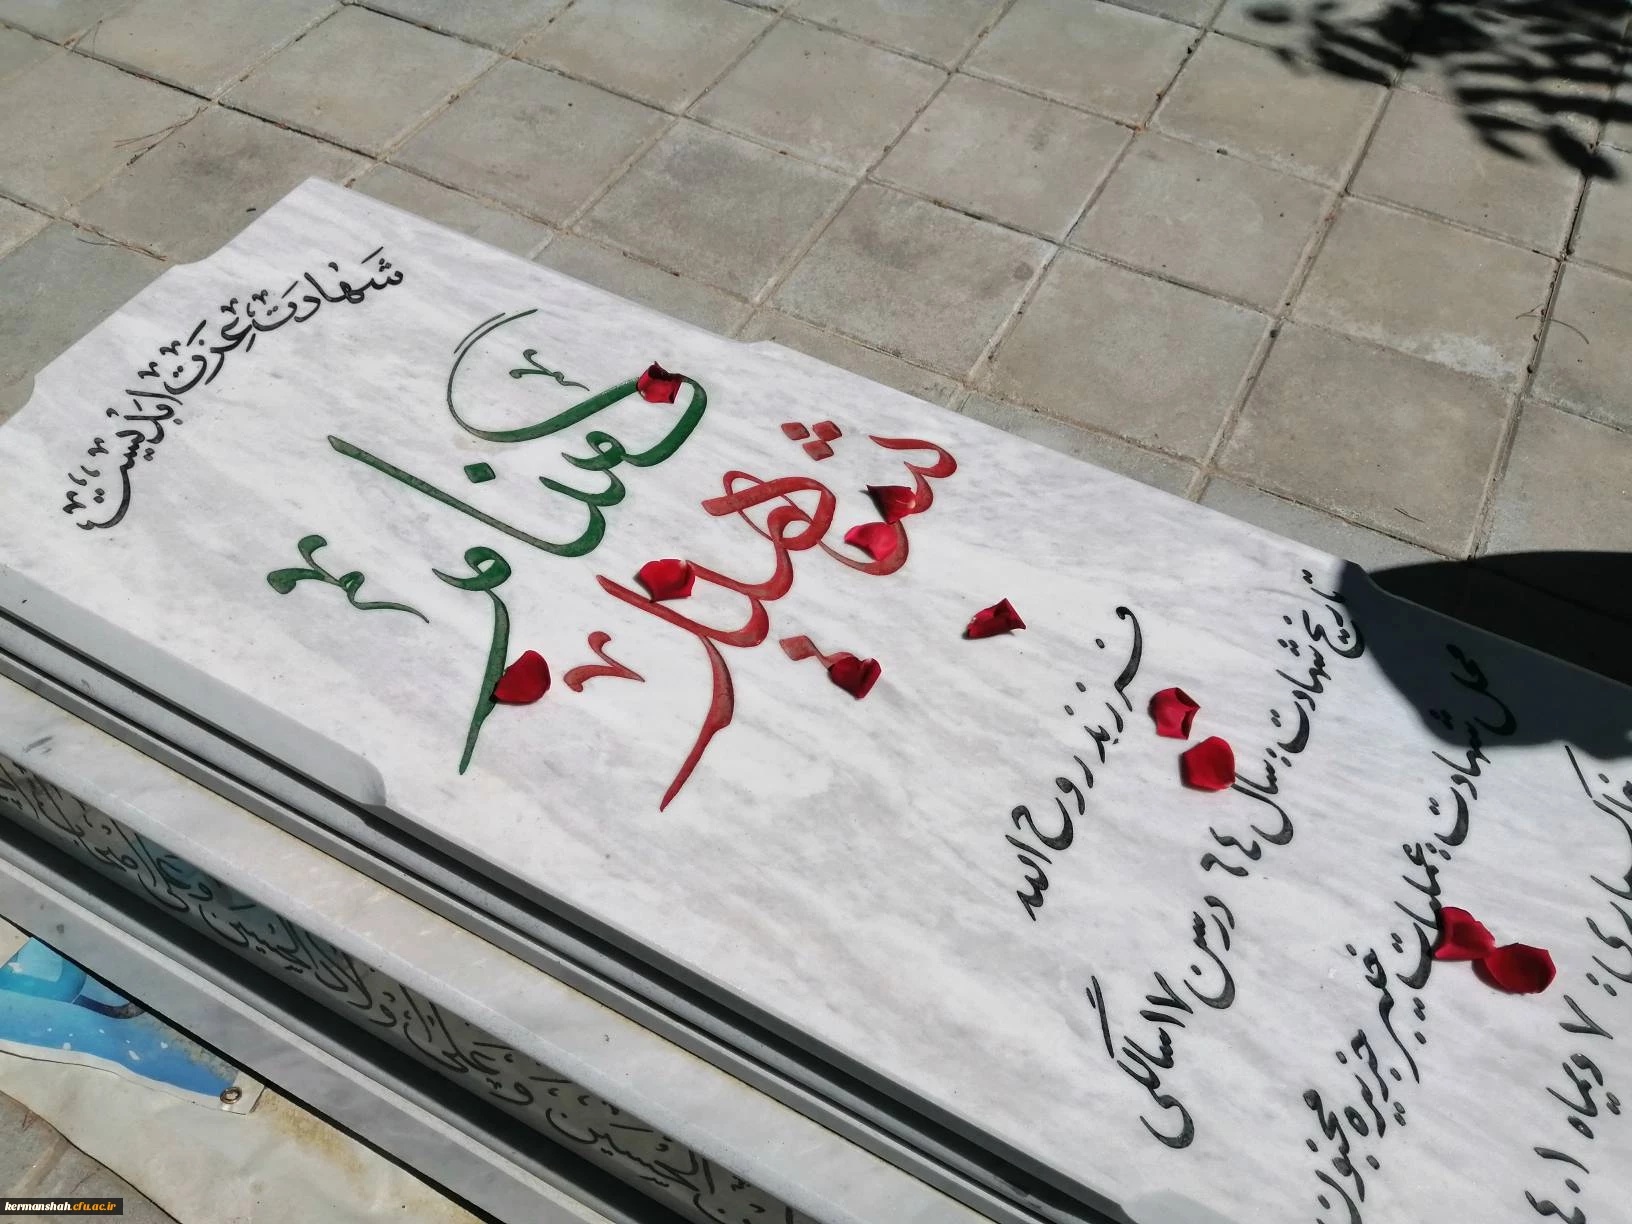 شهادت عزت ابدیست
شهید
گمنام
فرزند روح الله
تاریخ شهادت: سال ٦٤ در سن ١٧ سالگی
محل شهادت: عملیات خیبر جزیره مجنون
خاکسپاری: ٧ دیماه ١٤٠١
kermanshah.cfu.ac.ir